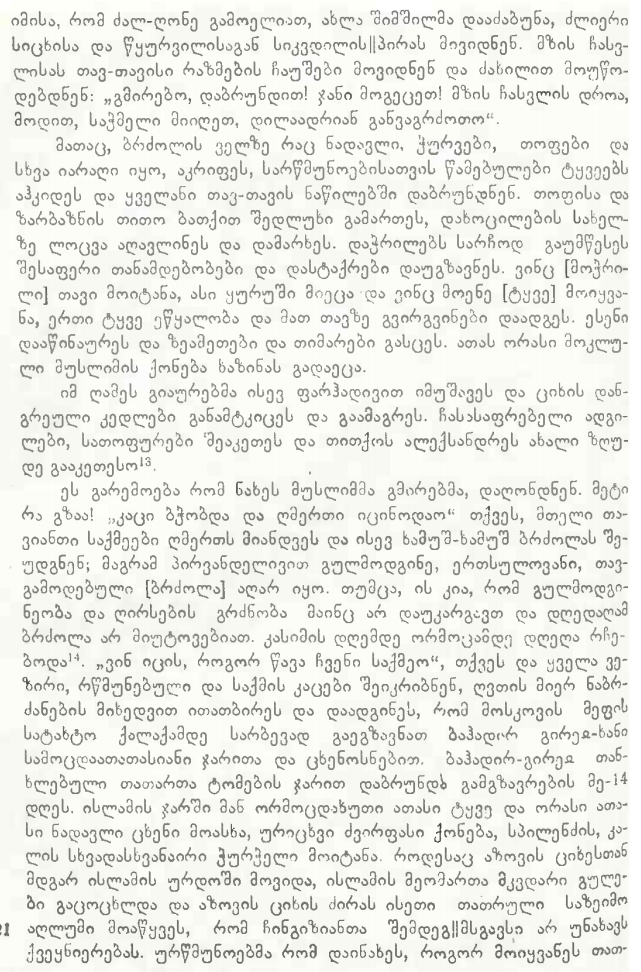 იმისა, რომ ძალ-ღონე გამოელიათ, ახლა შიმშილმა დააძაბუნა, ძლიერი
სიცხისა და წყურვილისაგან სიკვდილის||პირას მივიდნენ. მზის ჩასვ-
ლისას თავ-თავისი რაზმების ჩაუშები მოვიდნენ და ძახილით მოუწო-
დებდნენ: „გმირებო, დაბრუნდით! ჯანი მოგეცეთ! მზის ჩასვლის დროა,
მოდით, საჭმელი მიიღეთ, დილაადრიან განვაგრძოთო“.
მათაც, ბრძოლის ველზე რაც ნადავლი, ჭურვები, თოფები და
სხვა იარაღი იყო, აკრიფეს, სარწმუნოებისათვის წამებულები ტყვეებს
აჰკიდეს და ყველანი თავ-თავის ნაწილებში დაბრუნდნენ. თოფისა და
ზარბაზნის თითო ბათქით შედლუხი გამართეს, დახოცილების სახელ-
ზე ლოცვა აღავლინეს და დამარხეს. დაჭრილებს სარჩოდ გაუმწესეს
შესაფერი თანამდებობები და დასტაქრები დაუგზავნეს. ვინც [მოჭრი-
ლი] თავი მოიტანა, ასი ყურუში მიეცა და ვინც მოენე [ტყვე] მოიყვა-
ნა, ერთი ტყვე ეწყალობა და მათ თავზე გვირგვინები დაადგეს. ესენი
დააწინაურეს და ზეამეთები და თიმარები გასცეს. ათას ორასი მოკლუ-
ლი მუსლიმის ქონება ხაზინას გადაეცა.
იმ ღამეს გიაურებმა ისევ ფარჰადივით იმუშავეს და ციხის დან-
გრეული კედლები განამტკიცეს და გაამაგრეს. ჩასასაფრებელი ადგი-
ლები, სათოფურები შეაკეთეს და თითქოს ალექსანდრეს ახალი ზღუ-
დე გააკეთესო¹³.
ეს გარემოება რომ ნახეს მუსლიმმა გმირებმა, დაღონდნენ. მეტი
რა გზაა! „კაცი ბჭობდა და ღმერთი იცინოდაო“ თქვეს, მთელი თა-
ვიანთი საქმეები ღმერთს მიანდვეს და ისევ ხამუშ-ხამუშ ბრძოლას შე-
უდგნენ; მაგრამ პირვანდელივით გულმოდგინე, ერთსულოვანი, თავ-
გამოდებული [ბრძოლა] აღარ იყო. თუმცა, ის კია, რომ გულმოდგი-
ნეობა და ღირსების გრძნობა მაინც არ დაუკარგავთ და დღედაღამ
ბრძოლა არ მიუტოვებიათ. კასიმის დღემდე ორმოცამდე დღეღა რჩე-
ბოდა¹⁴. „ვინ იცის, როგორ წავა ჩვენი საქმეო“, თქვეს და ყველა ვე-
ზირი, რწმუნებული და საქმის კაცები შეიკრიბნენ, ღვთის მიერ ნაბრ-
ძანების მიხედვით ითათბირეს და დაადგინეს, რომ მოსკოვის მეფის
სატახტო ქალაქამდე სარბევად გაეგზავნათ ბაჰადირ გირეჲ-ხანი
სამოცდაათათასიანი ჯარითა და ცხენოსნებით. ბაჰადირ-გირეჲ თან-
ხლებული თათართა ტომების ჯარით დაბრუნდა გამგზავრების მე-14
დღეს. ისლამის ჯარში მან ორმოცდახუთი ათასი ტყვე და ორასი ათა-
სი ნადავლი ცხენი მოასხა, ურიცხვი ძვირფასი ქონება, სპილენძის, კა-
ლის სხვადასხვანაირი ჭურჭელი მოიტანა. როდესაც აზოვის ციხესთან
მდგარ ისლამის ურდოში მოვიდა, ისლამის მეომართა მკვდარი გულე-
ბი გაცოცხლდა და აზოვის ციხის ძირას ისეთი თათრული საზეიმო
21 აღლუმი მოაწყვეს, რომ ჩინგიზიანთა შემდეგ||მსგავსი არ უნახავს
ქვეყნიერებას. ურწმუნოებმა რომ დაინახეს, როგორ მოიყვანეს თათ-